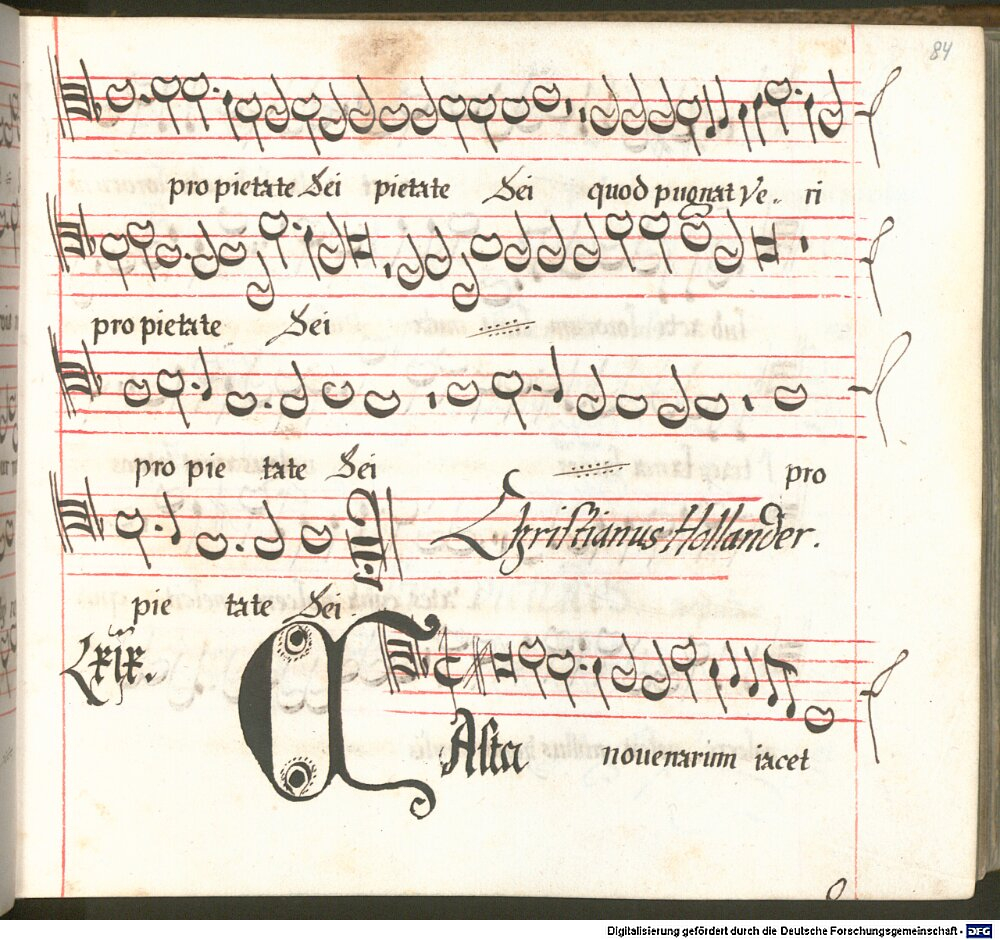 84
pro pietate Dei pietate Dei quod pugnat Ve.. ri
pro pietate Dei
pro pie tate Dei pro
Christianus Hollander.
pie tate Dei.
Lxix.
CAsta nouenarum iacet
Digitalisierung gefördert durch die Deutsche Forschungsgemeinschaft - DFG